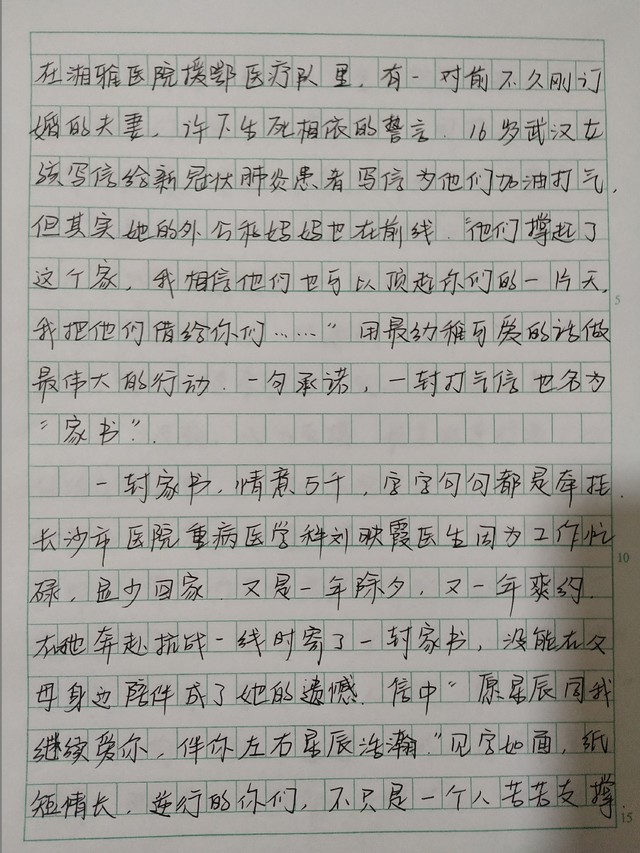 在湘雅医院援鄂医疗队里，有一对前不久刚订
婚的夫妻，许下生死相依的誓言．16岁武汉女
孩写信给新冠状肺炎患者写信为他们加油打气，
但其实她的外公和妈妈也在前线．“他们撑起了
这个家，我相信他们也可以顶起你们的一片天，
我把他们借给你们……”用最幼稚可爱的话做
最伟大的行动．一句承诺，一封打气信也名为
“家书”．
一封家书，情意万千，字字句句都是牵挂．
长沙市医院重病医学科刘映霞医生因为工作忙
碌，显少回家．又是一年除夕，又一年爽约．
在她奔赴抗战一线时寄了一封家书，没能在父
母身边陪伴成了她的遗憾．信中“愿星辰同我
继续爱你，伴你左右星辰浩瀚．”见字如面，纸
短情长，逆行的你们，不只是一个人苦苦支撑．
5
10
15